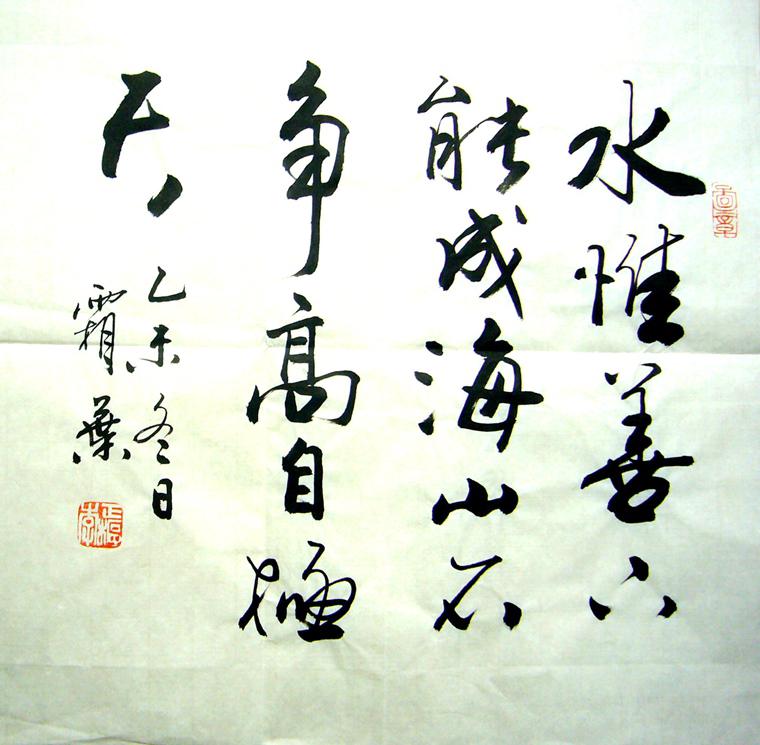 水惟善下
能成海山不
争高自極
天
乙未冬日
霜葉